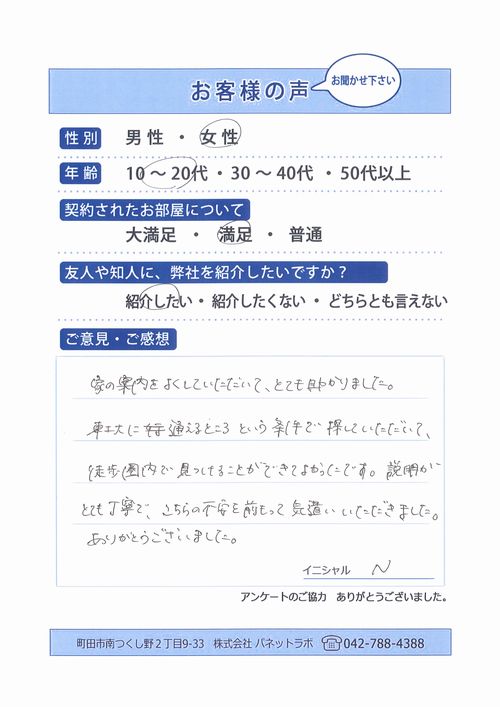 お客様の声
お聞かせ下さい
性別 男性 ・ 女性
年齢 10〜20代・30〜40代・50代以上
契約されたお部屋について
大満足 ・ 満足 ・ 普通
友人や知人に、弊社を紹介したいですか？
紹介したい・紹介したくない・どちらとも言えない
ご意見・ご感想
家の案内をよくしていただいて、とても助かりました。
東工大に通えるところという条件で探していただいて、
徒歩圏内で見つけることができてよかったです。説明が
とても丁寧で、こちらの不安を前もって気遣いいただきました。
ありがとうございました。
イニシャル N
アンケートのご協力 ありがとうございました。
町田市南つくし野2丁目9-33 株式会社 パネットラボ ☎042-788-4388